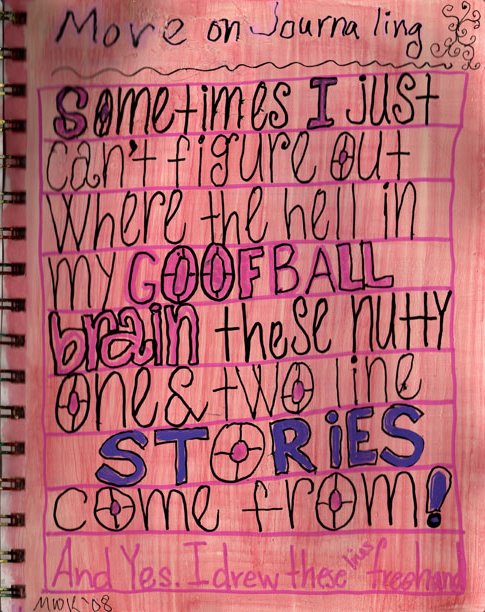 More on Journaling
Sometimes I just
can't figure out
where the hell in
my GOOFBALL
brain these nutty
one & two line
STORIES
come from!
And Yes. I drew these lines freehand
MWK '08